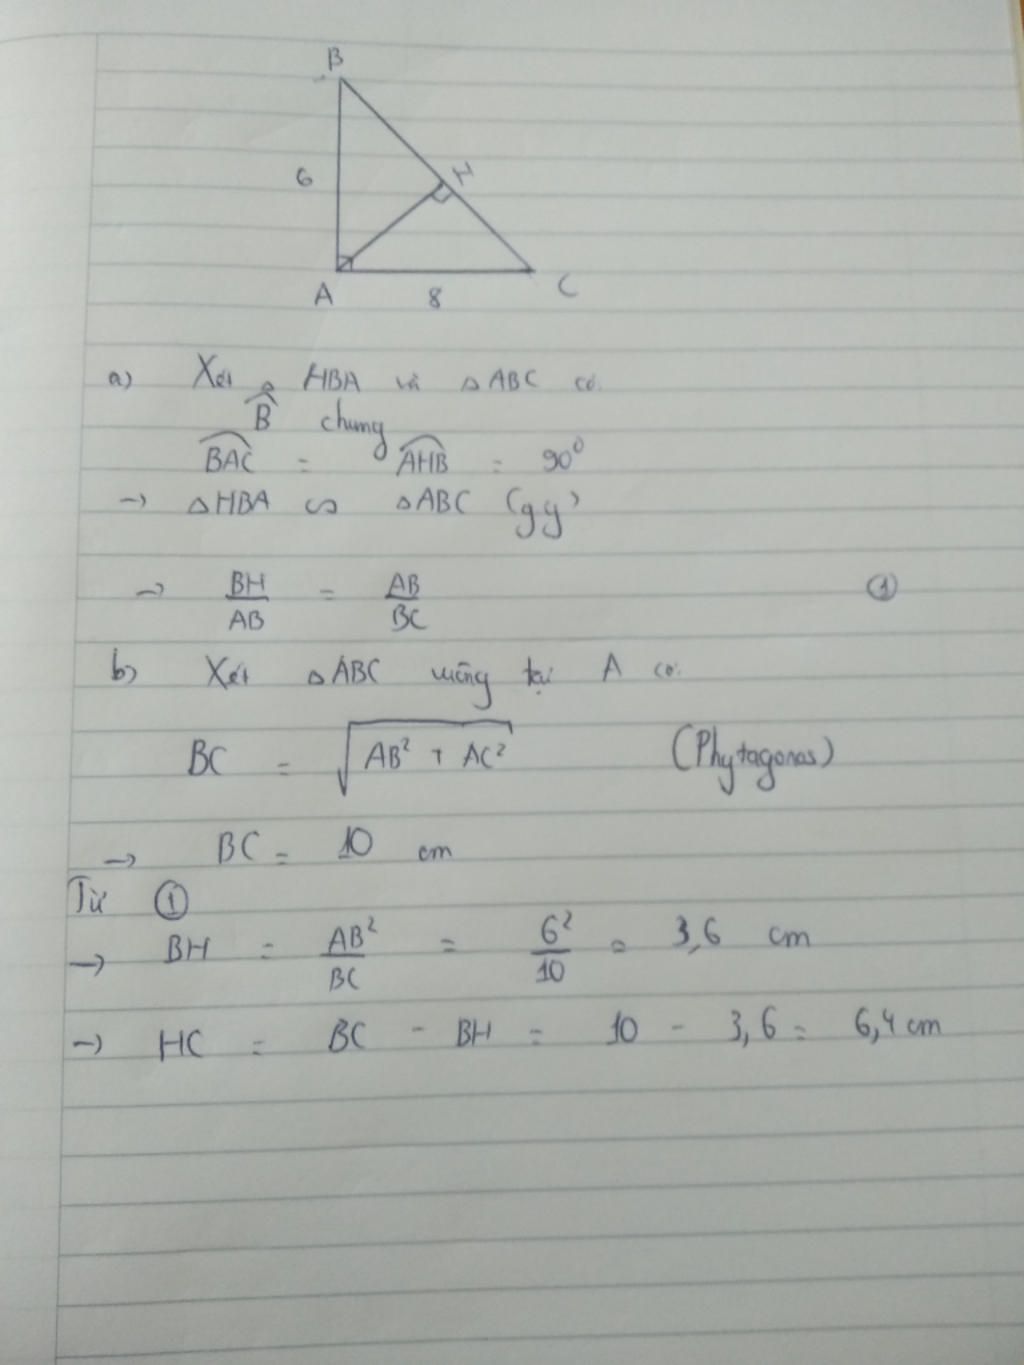 B
6
H
A
8
C
a) Xét △ HBA và △ABC có.
B̂ chung
B͡AC = A͡HB = 90⁰
→ △HBA ∽ △ABC (gg)
→ BH/AB = AB/BC ①
b) Xét △ABC vuông tại A có:
BC = √(AB² + AC²) (Phytagoras)
→ BC = 10 cm
Từ ①
→ BH = AB²/BC = 6²/10 = 3,6 cm
→ HC = BC - BH = 10 - 3,6 = 6,4 cm